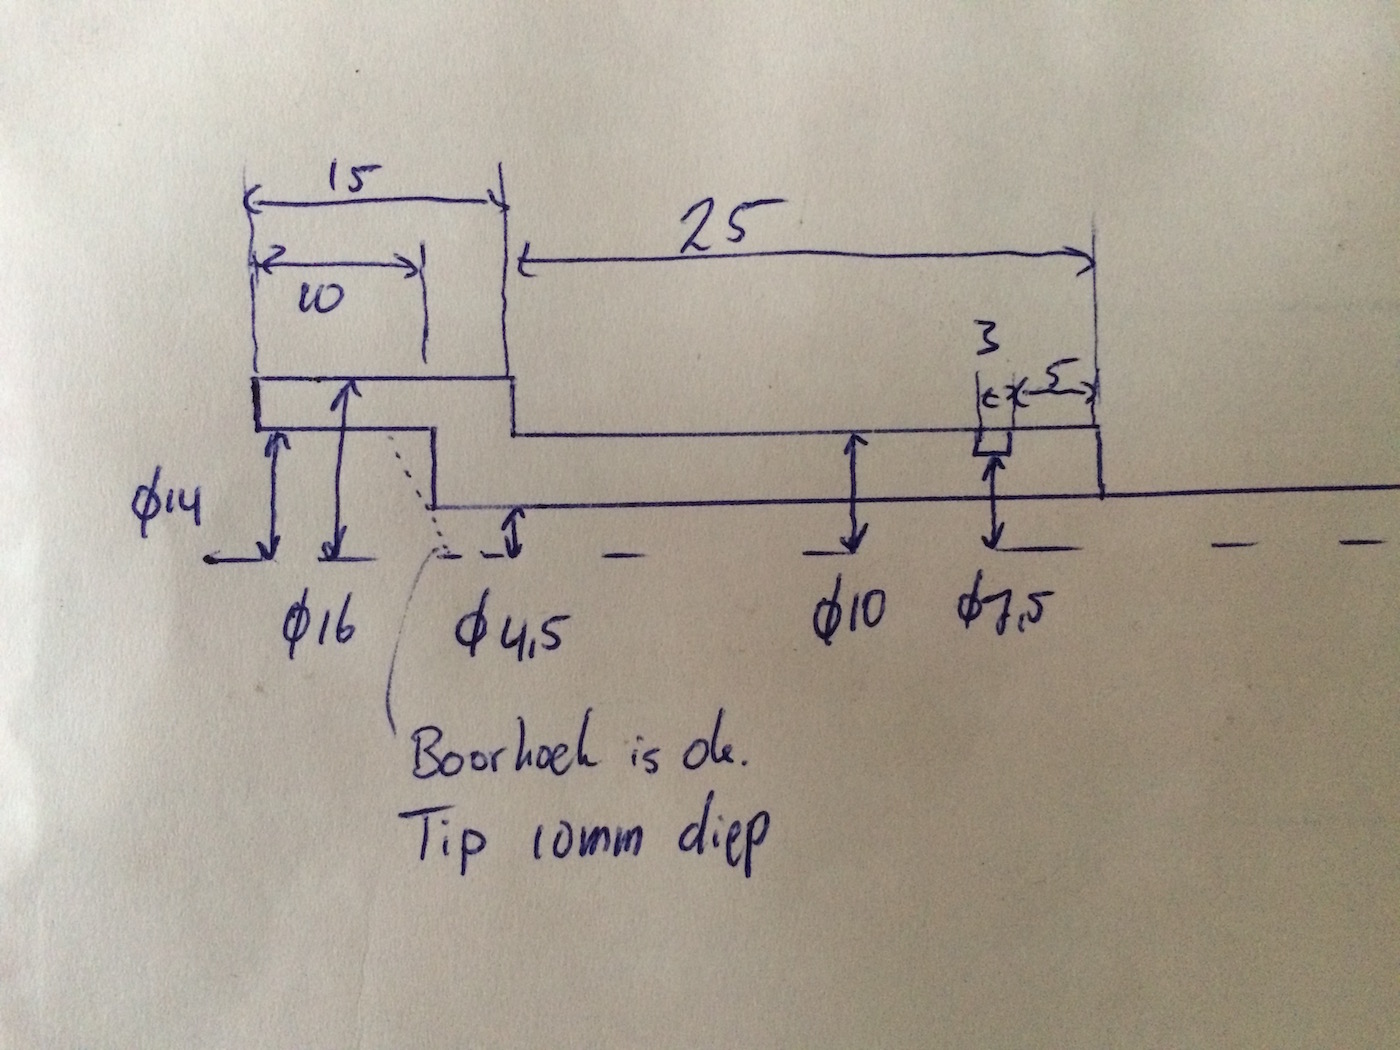 15
25
10
3
5
ϕ14
ϕ16
ϕ4,5
ϕ10
ϕ7,5
Boorhoek is ok.
Tip 10mm diep